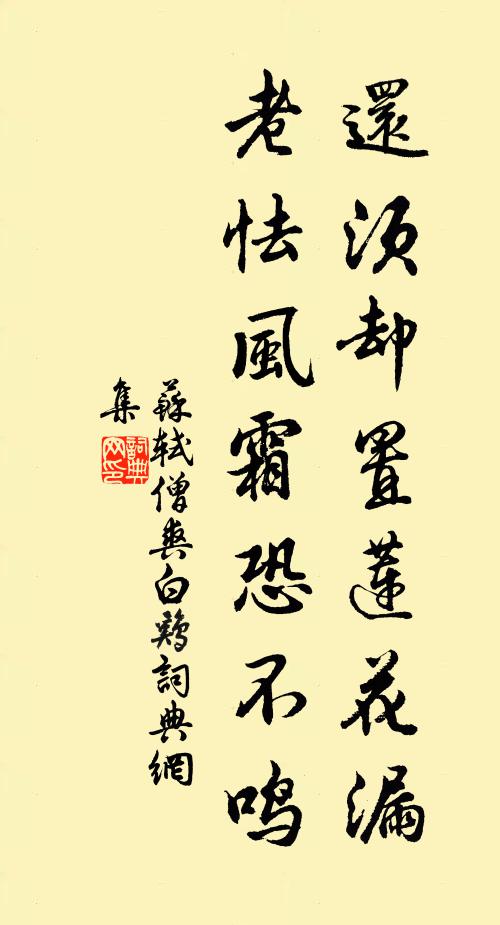 還須却置蓮花漏
老怯風霜恐不鸣
蘇軾僧爽白鷄詞典網
集
詞典网印